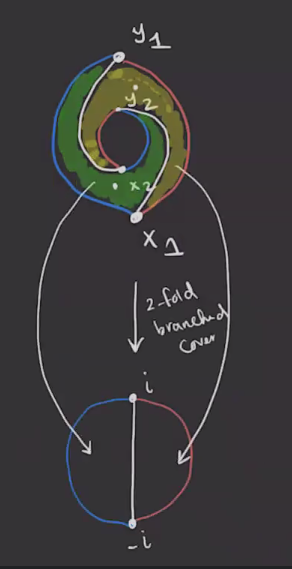 y1
y2
x2
x1
2-fold
branched
cover
i
-i